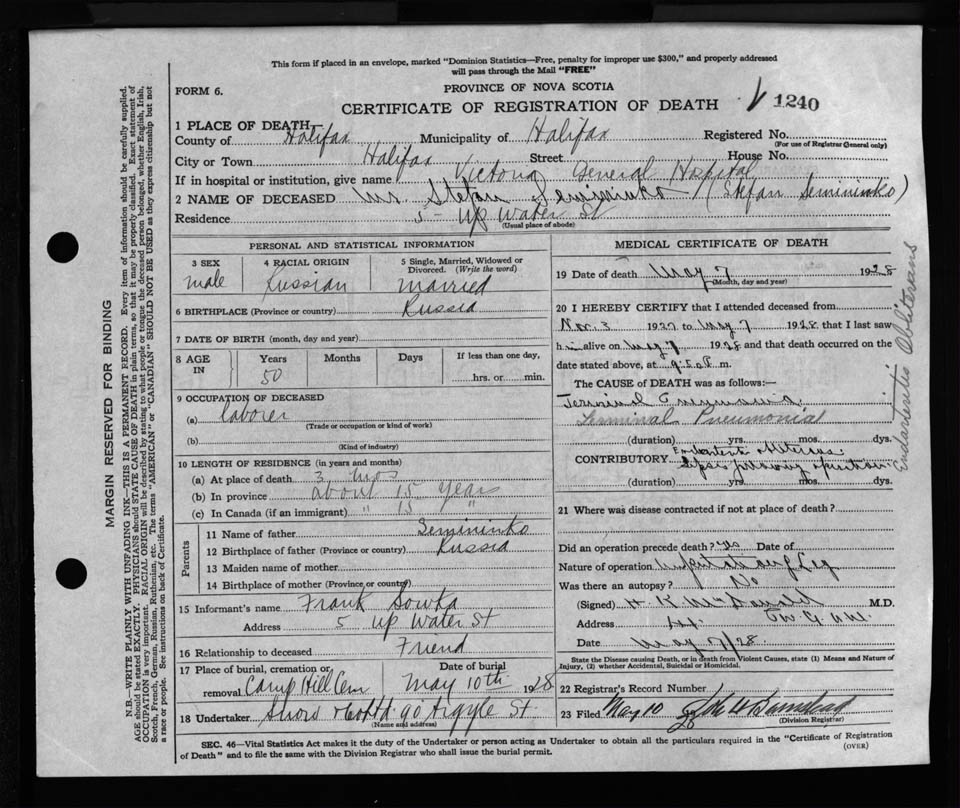 This form if placed in an envelope, marked "Dominion Statistics—Free, penalty for improper use $300," and properly addressed
will pass through the Mail "FREE"
FORM 6.
PROVINCE OF NOVA SCOTIA
CERTIFICATE OF REGISTRATION OF DEATH 1240
1 PLACE OF DEATH—
County of Halifax Municipality of Halifax Registered No.
(For use of Registrar General only)
City or Town Halifax Street House No.
If in hospital or institution, give name Victoria General Hospital
2 NAME OF DECEASED Mr. Stefan Semininko (Stefan Semininko)
Residence 5 - Up Water St
(Usual place of abode)
PERSONAL AND STATISTICAL INFORMATION
3 SEX 4 RACIAL ORIGIN 5 Single, Married, Widowed or Divorced. (Write the word)
male Russian married
6 BIRTHPLACE (Province or country) Russia
7 DATE OF BIRTH (month, day and year)
8 AGE IN Years Months Days If less than one day,
50 hrs. or min.
9 OCCUPATION OF DECEASED
(a) laborer
(Trade or occupation or kind of work)
(b)
(Kind of industry)
10 LENGTH OF RESIDENCE (in years and months)
(a) At place of death 3 mos
(b) In province about 15 years
(c) In Canada (if an immigrant) " 15 "
Parents
11 Name of father Semininko
12 Birthplace of father (Province or country) Russia
13 Maiden name of mother
14 Birthplace of mother (Province or country)
15 Informant's name Frank Sowka
Address 5 up Water St
16 Relationship to deceased Friend
17 Place of burial, cremation or removal Camp Hill Cem Date of burial May 10th 1928
18 Undertaker Snow & Co Ltd 90 Argyle St
(Name and address)
MEDICAL CERTIFICATE OF DEATH
19 Date of death May 7 1928
(Month, day and year)
20 I HEREBY CERTIFY that I attended deceased from
Nov. 3 1927 to May 7 1928 that I last saw
h im alive on May 7 1928 and that death occurred on the
date stated above, at 9:50 P m.
The CAUSE of DEATH was as follows:—
Terminal Pneumonia
Terminal Pneumonia
(duration) yrs. mos. dys.
CONTRIBUTORY Endarteritis obliterans
Sepsis following operation
(duration) yrs. mos. dys.
Endarteritis Obliterans
21 Where was disease contracted if not at place of death?
Did an operation precede death? yes Date of
Nature of operation Amputation of Leg
Was there an autopsy? No
(Signed) H. K. M.D.
Address
Date May 7/28.
State the Disease causing Death, or in death from Violent Causes, state (1) Means and Nature of
Injury, (2) whether Accidental, Suicidal or Homicidal.
22 Registrar's Record Number
23 Filed May 10 28
(Division Registrar)
SEC. 46—Vital Statistics Act makes it the duty of the Undertaker or person acting as Undertaker to obtain all the particulars required in the "Certificate of Registration
of Death" and to file the same with the Division Registrar who shall issue the burial permit. (OVER)
MARGIN RESERVED FOR BINDING
N.B.—WRITE PLAINLY WITH UNFADING INK—THIS IS A PERMANENT RECORD. Every item of information should be carefully supplied.
AGE should be stated EXACTLY. PHYSICIANS should STATE CAUSE OF DEATH in plain terms, so that it may be properly classified. Exact statement of
OCCUPATION is very important. RACIAL ORIGIN will be described by stating to what people or tongue the deceased person belonged, whether English, Irish,
Scotch, French, German, Russian, Ruthenian, etc. The terms "AMERICAN" or "CANADIAN" SHOULD NOT BE USED as they express citizenship but not
a race or people. See instructions on back of Certificate.